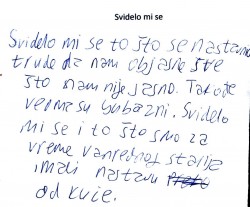 Svidelo mi se
Svidelo mi se to što se nastavno
trude da nam objasne šte
što nam nije jasno. Takođe
veoma su ljubazni. Svidelo
mi se i to što smo za
vreme vanrednog stanja
imali nastavu
od kuće.